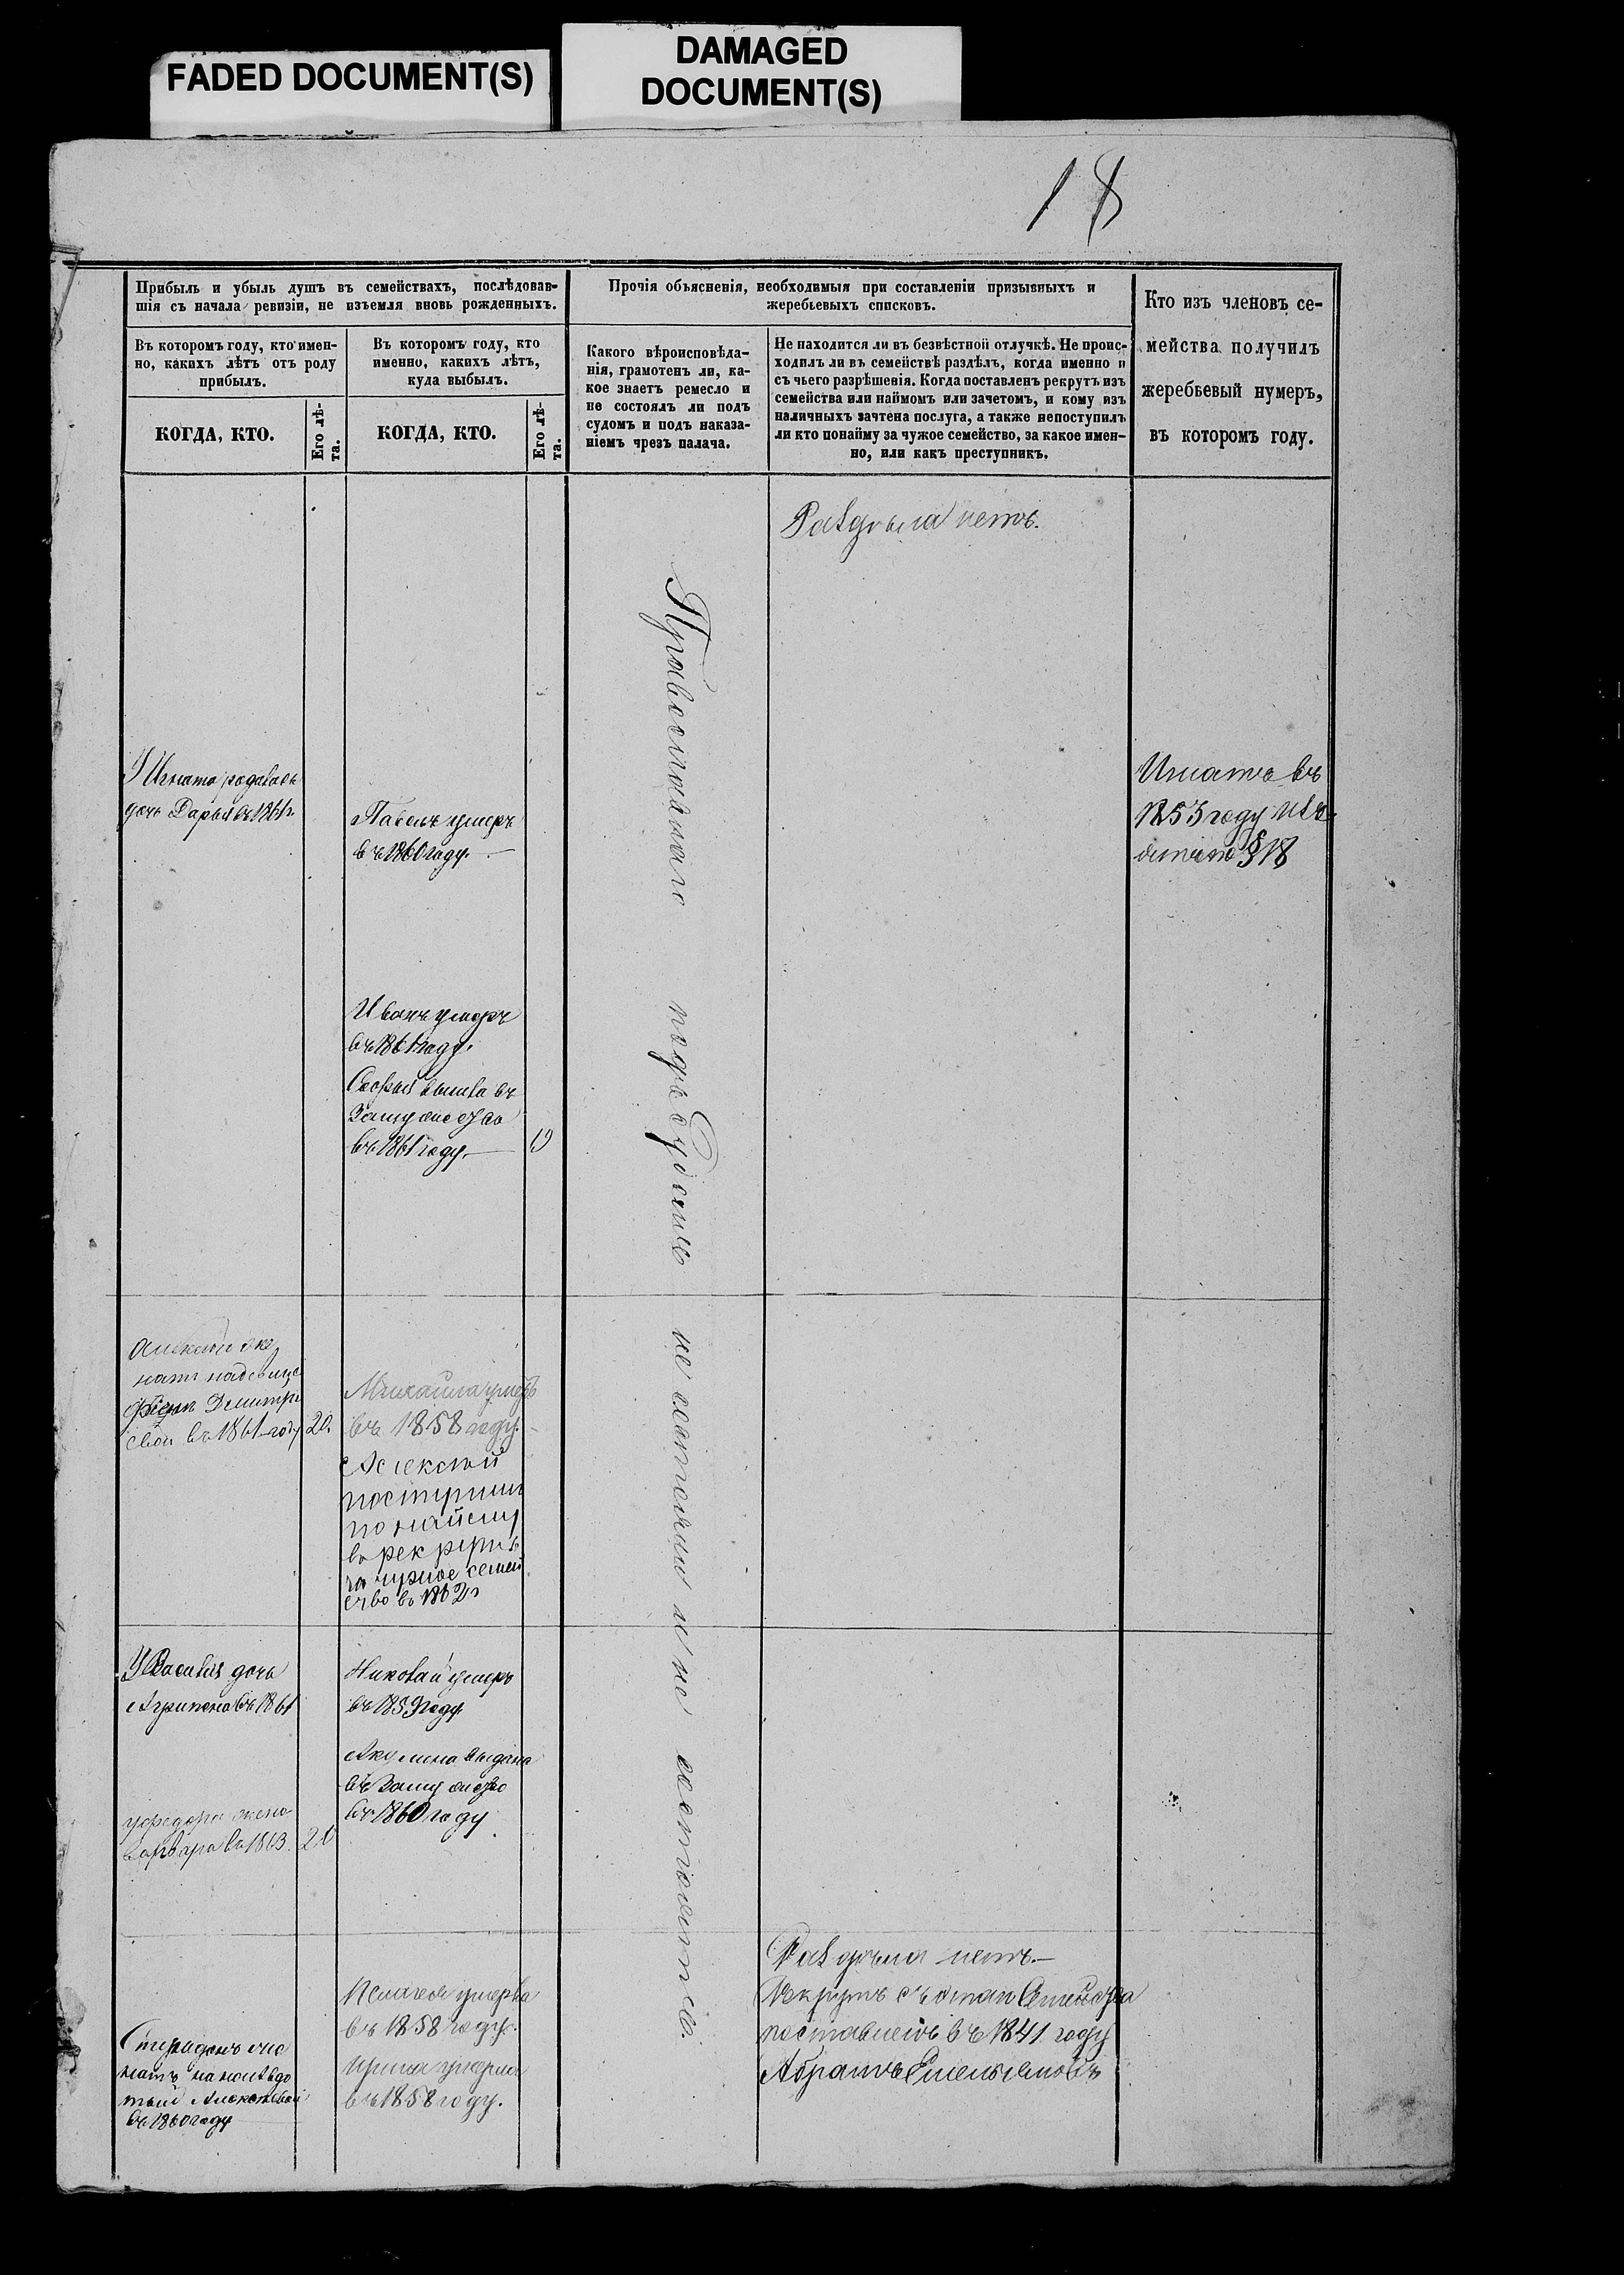 FADED DOCUMENT(S)
DAMAGED
DOCUMENT(S)
18
Прибыль и убыль душъ въ семействахъ, послѣдовав-
шія съ начала ревизіи, не изъемля вновь рожденныхъ.
Въ которомъ году, кто имен-
но, какихъ лѣтъ отъ роду
прибылъ.
КОГДА, КТО.
Его лѣ-
та.
Въ которомъ году, кто
именно, какихъ лѣтъ,
куда выбылъ.
КОГДА, КТО.
Его лѣ-
та.
Прочія объясненія, необходимыя при составленіи призывныхъ и
жеребьевыхъ списковъ.
Какого вѣроисповѣда-
нія, грамотенъ ли, ка-
кое знаетъ ремесло и
не состоялъ ли подъ
судомъ и подъ наказа-
ніемъ чрезъ палача.
Не находится ли въ безвѣстной отлучкѣ. Не проис-
ходилъ ли въ семействѣ раздѣлъ, когда именно и
съ чьего разрѣшенія. Когда поставленъ рекрутъ изъ
семейства или наймомъ или зачетомъ, и кому изъ
наличныхъ зачтена послуга, а также непоступилъ
ли кто понайму за чужое семейство, за какое имен-
но, или какъ преступникъ.
Кто изъ членовъ се-
мейства получилъ
жеребьевый нумеръ,
въ которомъ году.
Раздѣла нетъ.
У Игната родилась
дочь Дарья въ 1861 г.
Павелъ умеръ
въ 1860 году.
Игнатъ въ
1853 году
№ 18
Иванъ умеръ
въ 1861 году.
вышла въ
Замужество
въ 1861 году. 19
Православнаго подъ Судомъ не состояли и не состоятъ.
Алексей же
натъ на девице
Дмитрі
евой въ 1861 году 20.
Михайла умеръ
въ 1858 году.
Алексѣй
поступилъ
по найму
въ рекруты
за чужое семей
ство въ 1862 г
У Василья дочь
Агрипена въ 1861
Николай умеръ
въ 1859 году
Акулина выдана
въ Замужество
въ 1860 году
жена
варвара въ 1863. 20
Пелагея умерла
въ 1858 году.
Ирина умерла
въ 1858 году.
Спиридонъ же
натъ на
Алексѣевой
въ 1860 году
Раздѣла нетъ.—
Рекрутъ съ Семейства
поставленъ въ 1841 году
Абрамъ Емельяновъ